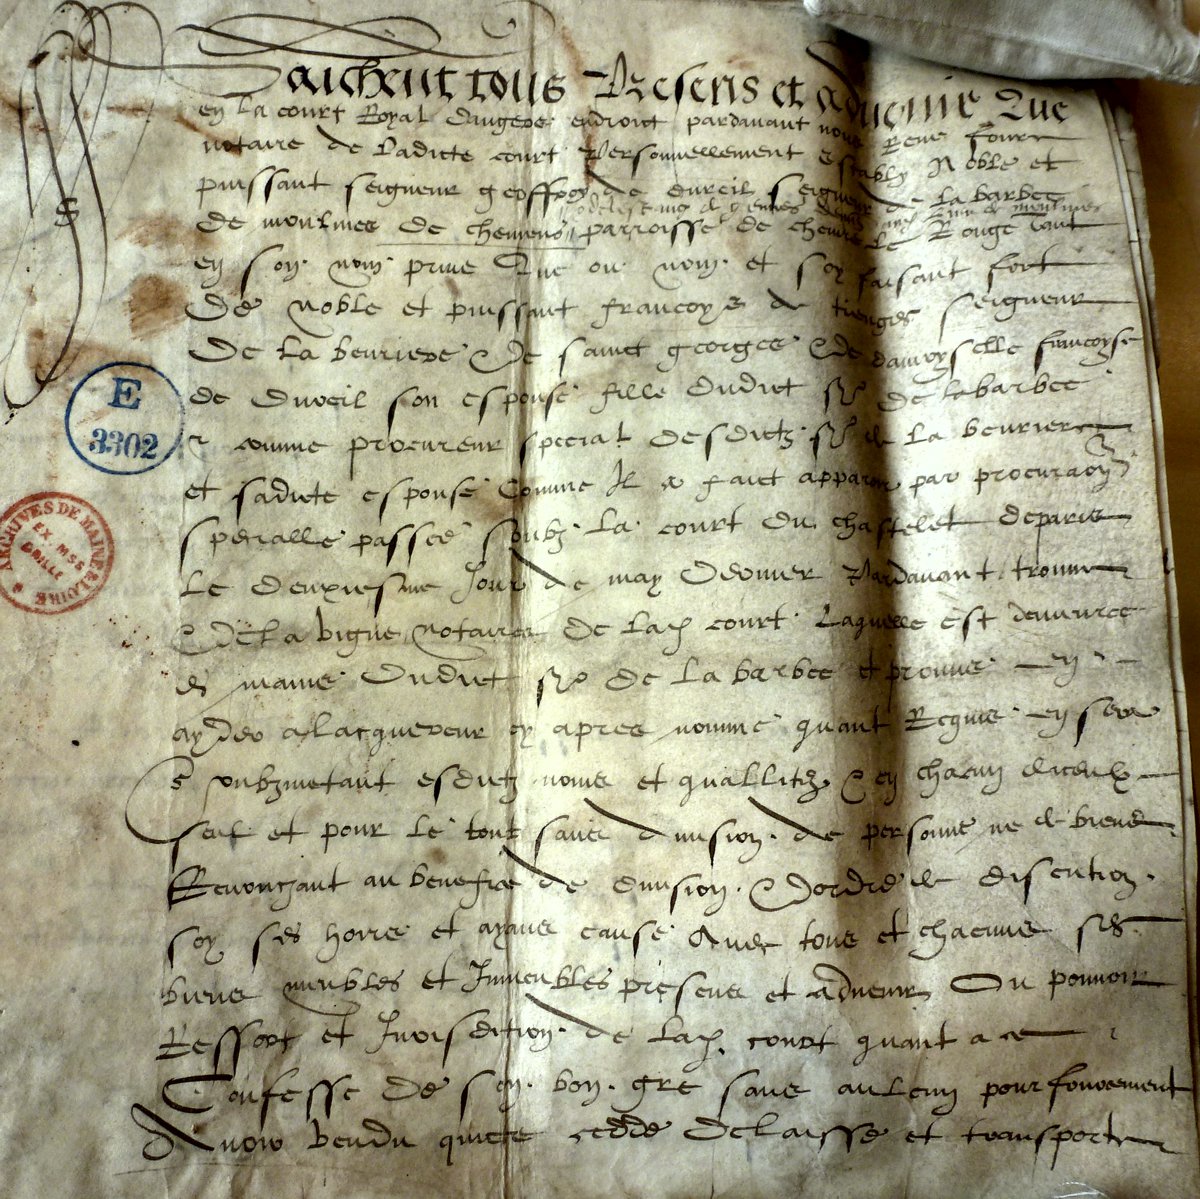 Saichent tous Presens et advenir Que
en la court Royal dangers endroict pardavant nous Rene
notaire de ladicte court Personnellement estably Noble et
puissant seigneur geoffroy de dureil seigneur de la barbee
de moulines de chemens parroisse de le Rouge tant
en son nom prive Que ou nom et soy faisant fort
De noble et puissant francoys de tienges seigneur
De la beuriere De sainct georges de damoyselle francoyse
de Dureil son espouse fille dudict sr De labarbee
comme procureur special desdictz sr de la beuriere
et sadicte espouse Comme Il a faict apparoir par procuracion
specialle passee soubz la court du chastelet de paris
Le deuxiesme Jour de may Dernier Pardavant
De la vigne notaires De lad court Laquelle est demeuree
es mains Dudict sr De La barbee et en
alacquereur cy apres nomme quant Requis en sera
soubzmetant esdictz noms et quallitez en chacun diceulx
seul et pour le tout sans division de personne ne de biens
Renonczant au benefice de division Dordre de discution
soy ses hoirs et ayans cause Avec tous et chacuns ses
biens meubles et Immeubles presens et advenir Ou pouvoir
Ressort et Jurisdition de lad court quant a ce
Confesse De son bon gre sans aulcun pourforcement
Avoir vendu quicte cedde Delaisse et transporte
E
3302
ARCHIVES DE MAINE & LOIRE
EX. MSS
GRILLE